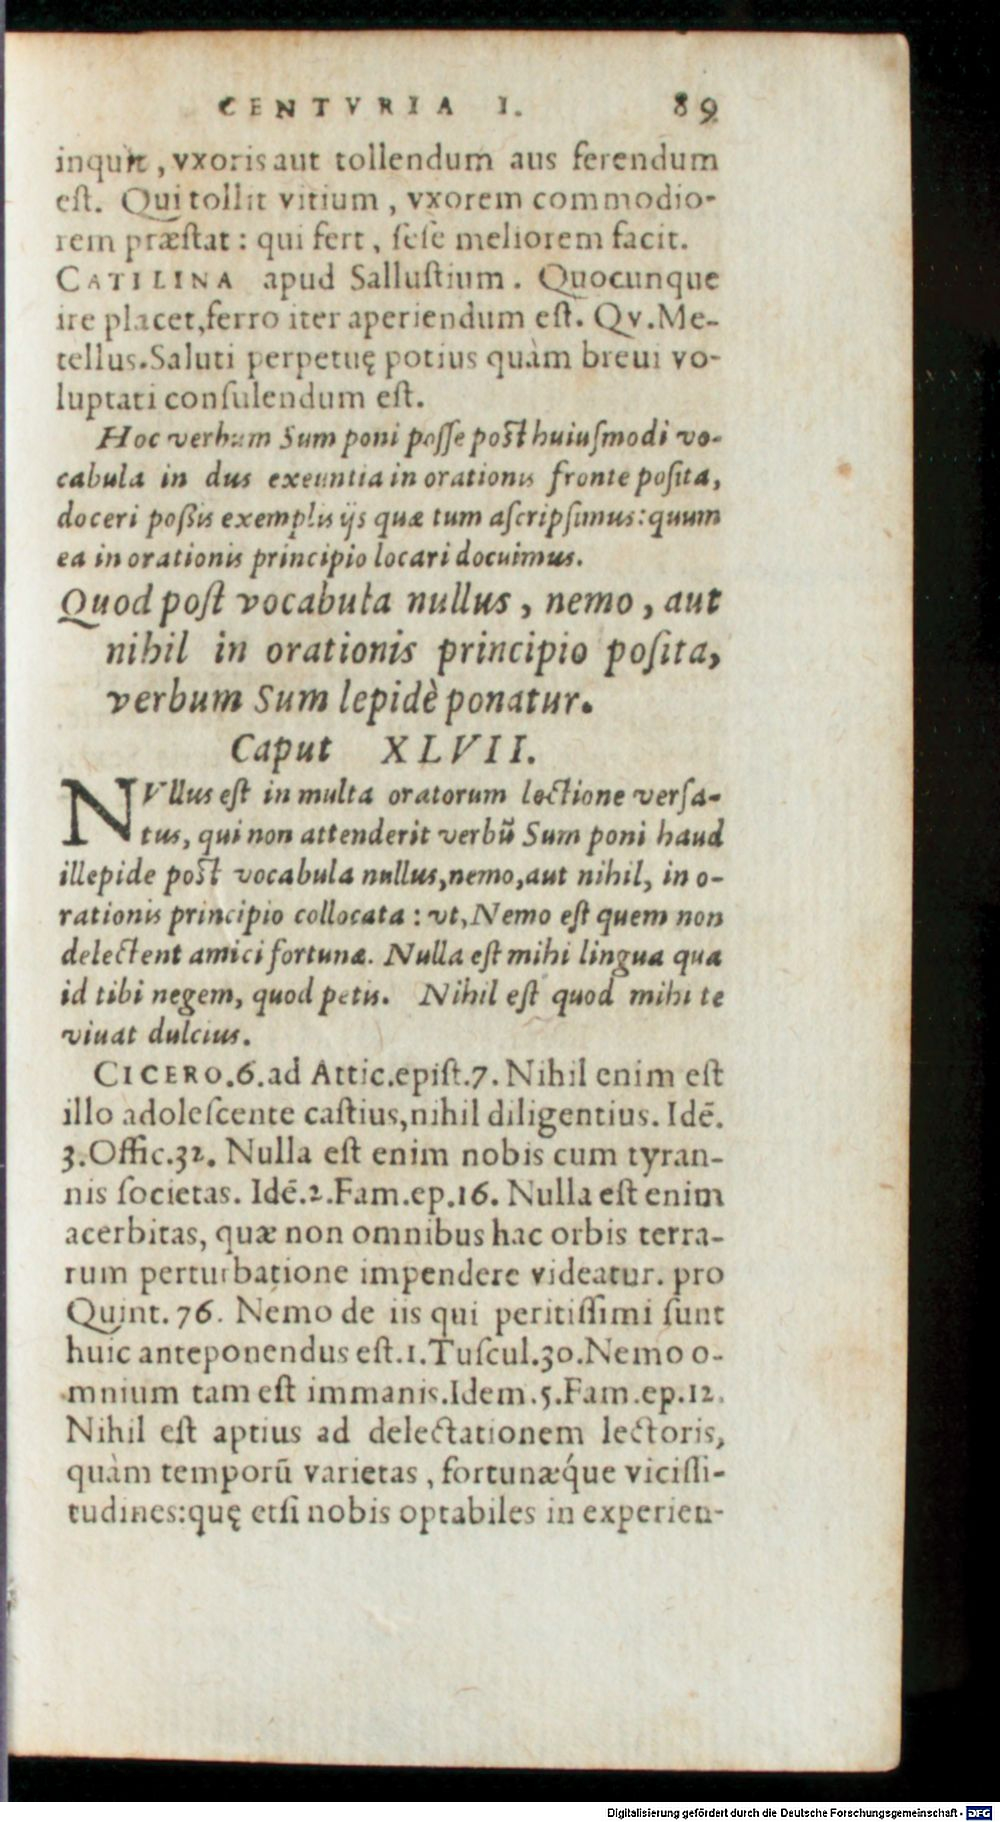 CENTVRIA I. 89
inquit, vxoris aut tollendum aus ferendum
eſt. Qui tollit vitium, vxorem commodio-
rem præſtat: qui fert, ſeſe meliorem facit.
CATILINA apud Salluſtium. Quocunque
ire placet, ferro iter aperiendum eſt. Qv. Me-
tellus. Saluti perpetuę potius quàm breui vo-
luptati conſulendum eſt.
Hoc verbum Sum poni poſſe poſt huiuſmodi vo-
cabula in dus exeuntia in orationis fronte poſita,
doceri poſſis exemplis ijs quæ tum aſcripſimus: quum
ea in orationis principio locari docuimus.
Quod poſt vocabula nullus, nemo, aut
nihil in orationis principio poſita,
verbum Sum lepidè ponatur.
Caput XLVII.
NVllus eſt in multa oratorum lectione verſa-
tus, qui non attenderit verbũ Sum poni haud
illepide poſt vocabula nullus, nemo, aut nihil, in o-
rationis principio collocata: vt, Nemo eſt quem non
delectent amici fortunæ. Nulla eſt mihi lingua qua
id tibi negem, quod petis. Nihil eſt quod mihi te
viuat dulcius.
CICERO. 6. ad Attic. epiſt. 7. Nihil enim eſt
illo adoleſcente caſtius, nihil diligentius. Idē.
3. Offic. 32. Nulla eſt enim nobis cum tyran-
nis ſocietas. Idē. 2. Fam. ep. 16. Nulla eſt enim
acerbitas, quæ non omnibus hac orbis terra-
rum perturbatione impendere videatur. pro
Quint. 76. Nemo de iis qui peritiſſimi ſunt
huic anteponendus eſt. 1. Tuſcul. 30. Nemo o-
mnium tam eſt immanis. Idem. 5. Fam. ep. 12.
Nihil eſt aptius ad delectationem lectoris,
quàm temporũ varietas, fortunæq́ue viciſſi-
tudines: quę etſi nobis optabiles in experien-
Digitalisierung gefördert durch die Deutsche Forschungsgemeinschaft - DFG